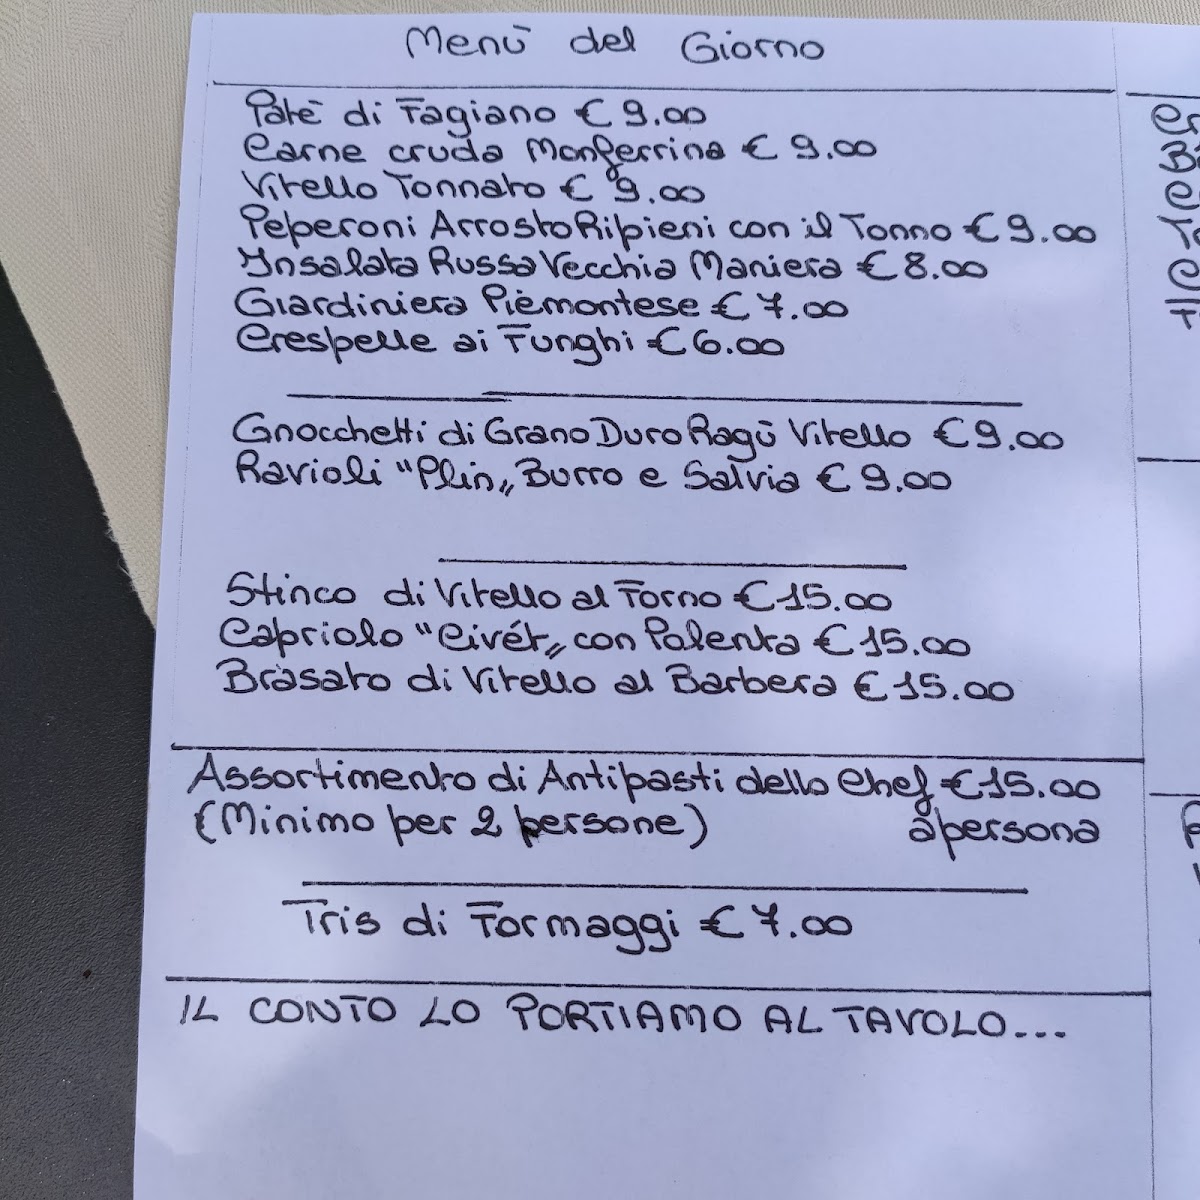 Menù del Giorno
Patè di Fagiano € 9.00
Carne cruda Monferrina € 9.00
Vitello Tonnato € 9.00
Peperoni Arrosto Ripieni con il Tonno € 9.00
Insalata Russa Vecchia Maniera € 8.00
Giardiniera Piemontese € 7.00
Crespelle ai Funghi € 6.00
Gnocchetti di Grano Duro Ragù Vitello € 9.00
Ravioli "Plin„ Burro e Salvia € 9.00
Stinco di Vitello al Forno € 15.00
Capriolo "Civét„ con Polenta € 15.00
Brasato di Vitello al Barbera € 15.00
Assortimento di Antipasti dello Chef € 15.00
(Minimo per 2 persone) a persona
Tris di Formaggi € 7.00
IL CONTO LO PORTIAMO AL TAVOLO...